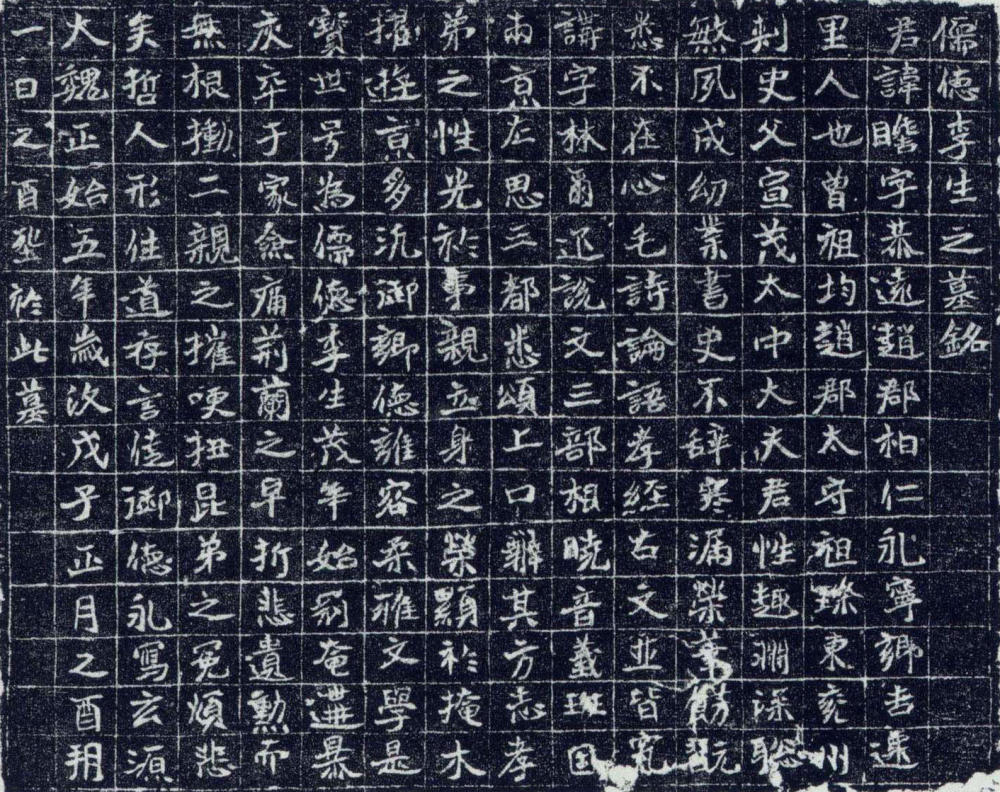 儒德李生之墓銘
君諱瞻字恭遠趙郡柏仁永寧鄉吉遷
里人也曾祖均趙郡太守祖璨東兗州
刺史父宣茂太中大夫君性趣澗深聡
敏夙成幼業書史不辭寒漏榮
悉不在心毛詩論語孝經古文並皆究
講字林爾迩說文三部相曉音義班固
兩京左思三都悉頌上口辭其方志孝
弟之性光於事親立身之榮顯於掩木
擢遊京多沉御鄉德雍容柔雅文學是
寶世号為儒德李生茂年始奄遘暴
疾卒于家僉痛荊蘭之早折悲遺勳而
無根二親之摧哽昆弟之冤煩悲
矣哲人形住道存言佳御德永寫云源
大魏正始五年歲次戊子正月之酉朔
一日之酉於此墓